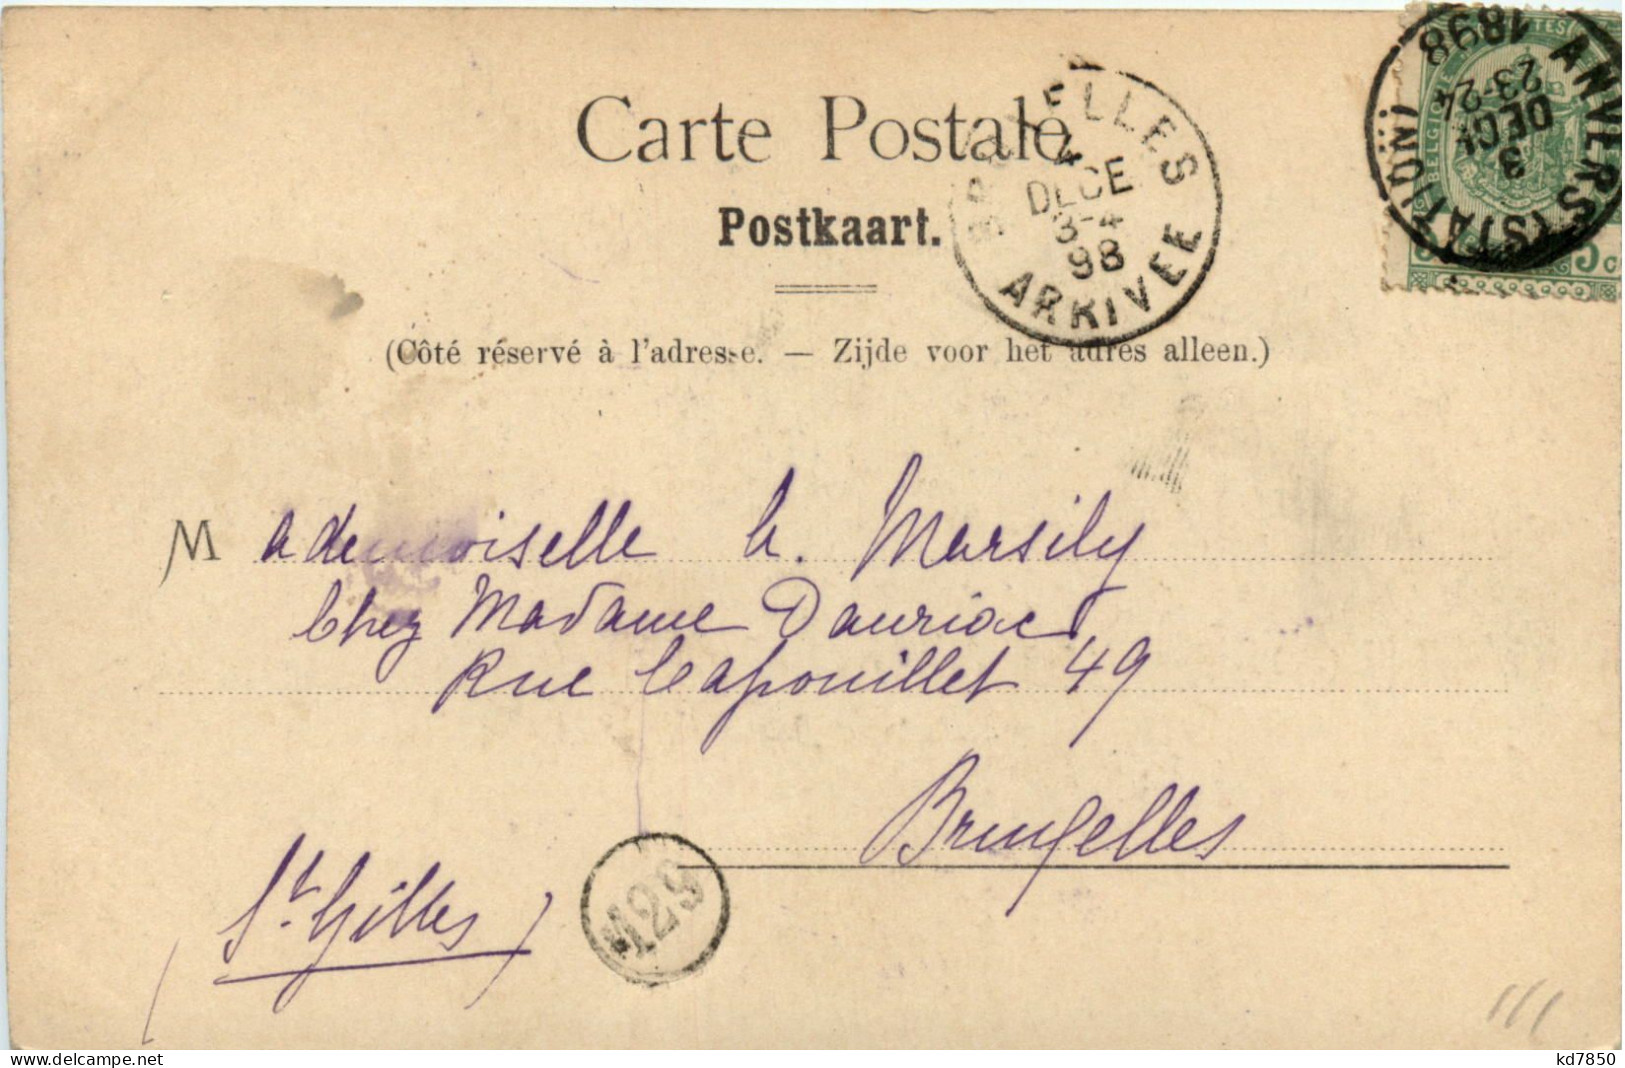 Carte Postale
Postkaart.
(Côté réservé à l'adresse. — Zijde voor het adres alleen.)
BRUXELLES
4
DECE
3-4
98
ARRIVEE
ANVERS (STATION)
3
DECE
23-24
1898
BELGIQUE
5 c
Mademoiselle h. Marsily
Chez Madame Dauriac
Rue Capouillet 49
Bruxelles
(St. Gilles)
129
www.delcampe.net
kd7850